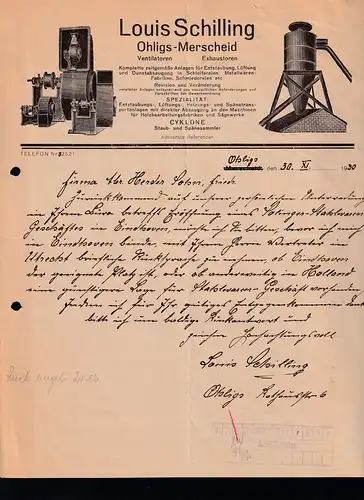 Louis Schilling
Ohligs-Merscheid
Ventilatoren Exhaustoren
Komplette zeitgemäße Anlagen für Entstaubung, Lüftung
und Dunstabsaugung in Schleifereien, Metallwaren-
Fabriken, Schmiedereien etc
Revision und Veränderung
SPEZIALITÄT
Entstaubungs-, Lüftungs-, Heizungs- und Spänetrans-
portanlagen mit direkter Absaugung an den Maschinen
für Holzbearbeitungsfabriken und Sägewerke
CYKLONE
Staub- und Spänesammler
Allererste Referenzen
TELEFON Nr. 32521
Ohligs den 30. XI. 1930
Firma Abr. Herder Sohn,
Zurückkommend auf unsere persönliche Unterredung
in Ihrem Büro betreffs Eröffnung eines Solinger-Stahlwaren
Geschäftes in Eindhoven, möchte ich Sie bitten, bevor ich mich
in Eindhoven binde, mit Ihrem Herrn Vertreter in
Utrecht briefliche Rücksprache zu nehmen, ob Eindhoven
der geeignete Platz ist, oder ob anderweitig in Holland
eine günstigere Lage für Stahlwaren-Geschäft vorhanden.
Indem ich für Ihr gütiges Entgegenkommen danke
bitte ich um baldige Rückantwort und
zeichne Hochachtungsvoll
Louis Schilling
Ohligs Rathausstr 6